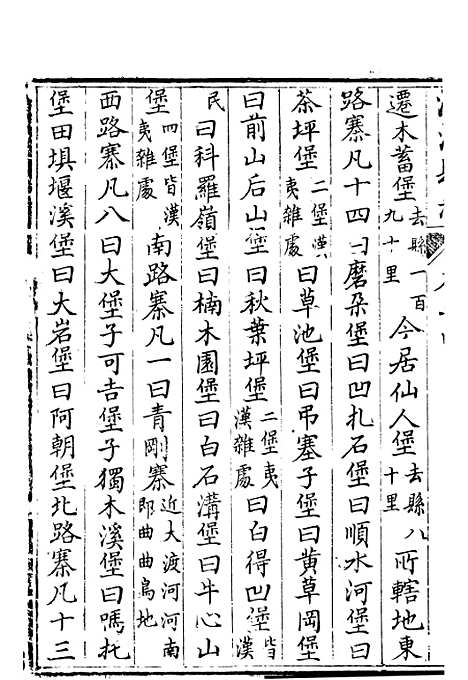 遷木蓄堡去縣一百九十里今居仙人堡去縣八十里所轄地東
路寨凡十四曰磨朶堡曰凹扎石堡曰順水河堡曰
茶坪堡二堡漢夷雜處曰草池堡曰吊寨子堡曰黄草岡堡
曰前山后山堡曰秋葉坪堡二堡夷漢雜處曰白得凹堡皆漢
民曰科羅嶺堡曰楠木園堡曰白石溝堡曰牛心山
堡四堡皆漢夷雜處南路寨凡一曰青剛寨近大渡河河南即曲曲鳥地
西路寨凡八曰大堡子可吉堡子獨木溪堡曰嗎托
堡田埧堰溪堡曰大岩堡曰阿朝堡北路寨凡十三